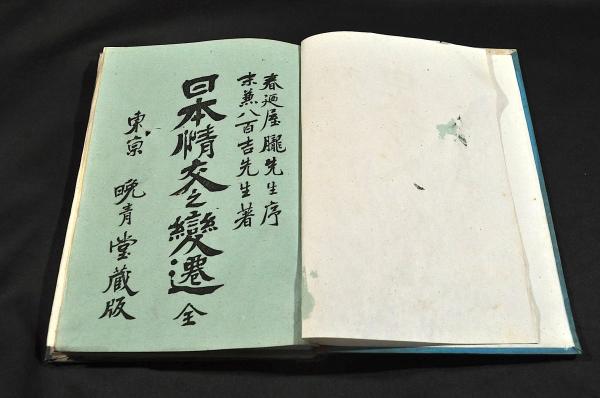 春廼屋朧先生序
末兼八百吉先生著
日本情交之變遷 全
東京 晩青堂藏版